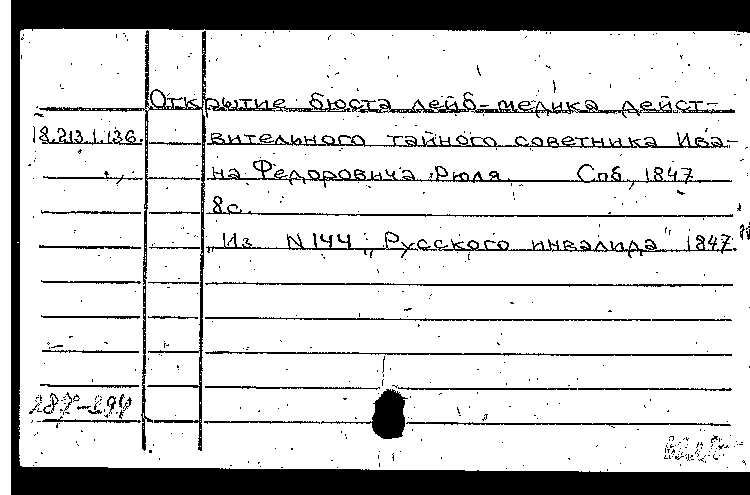 Открытие бюста лейб-медика дейст-
18.213.1.136. вительного тайного советника Ива-
на Федоровича Рюля. Спб., 1847.
8с.
Из N144 „Русского инвалида" 1847.